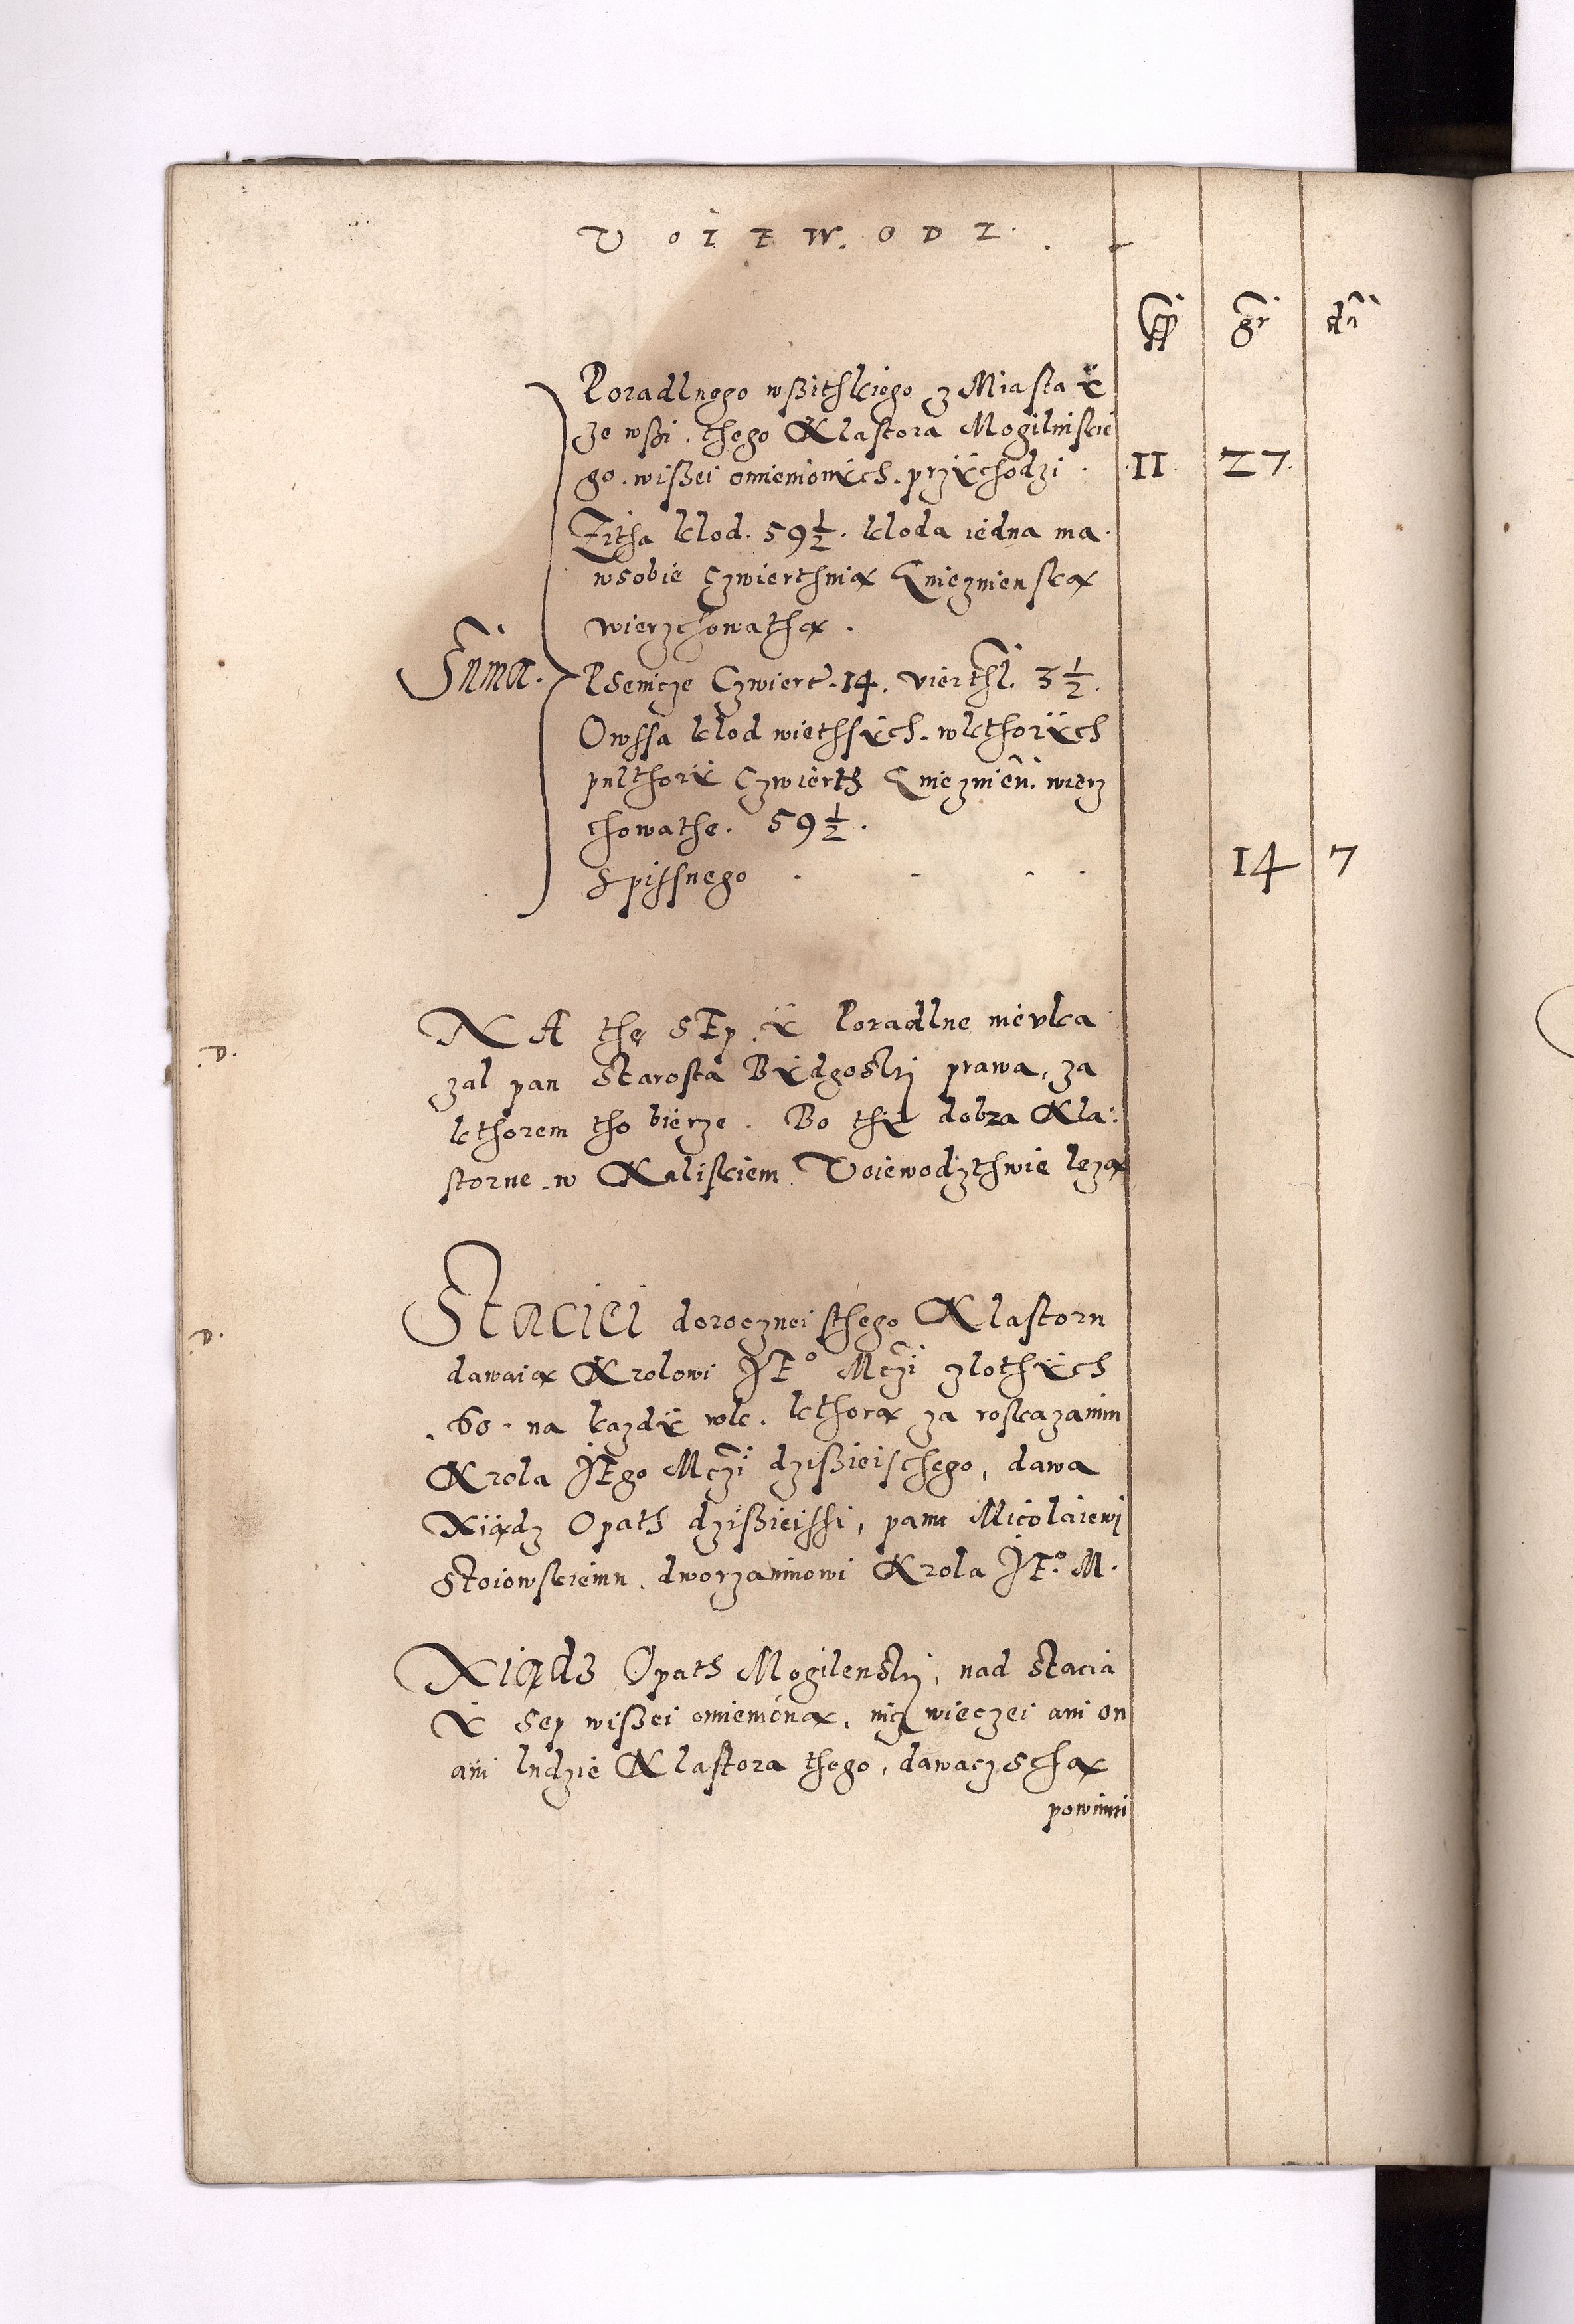 VOIEWODZ.
gr dn
Poradlnego wßithkiego z Miasta ÿ
ze wßi. thego Klastora Mogilniskie
go. wißei omienionÿch. przÿchodzi . 11 27.
Zitha klod. 59 1/2. kloda iedna ma
wsobie Czwierthnią Gnieznienską
wierzchowathą.
Suma.
Psenicze Czwiert. 14. vierthl. 3 1/2.
Owssa klod wiethsÿch. wkthorÿch
pulthorÿ Czwierth Gnieznien. wierz
chowathe. 59 1/2.
Spissnego . . . . 14 7
NA thę SEp ÿ Poradlne nievka
zal pan Starosta Bÿdgoski prawa, za
kthorem tho bierze. Bo thÿ dobra Kla:
storne. w Kaliskiem Voiewodzthwie lezą
Staciei doroeznei sthego Klastoru
dawaią Krolowi JE° Mczi zlothÿch
.60. na kazdÿ rok. kthorą za roskazanim
Krola JEgo Mczi dzißieischego, dawa
Xiądz Opath dzißieissi, panu Micolaiewi
Stoiowskiemu. dworzaninowi Krola JE°. M.
Xiądz Opath Mogilenski, nad Stacia
ÿ Sep wißei omienioną, nicz wieczei ani on
ani ludzie Klastora thego, dawacz schą
powinni